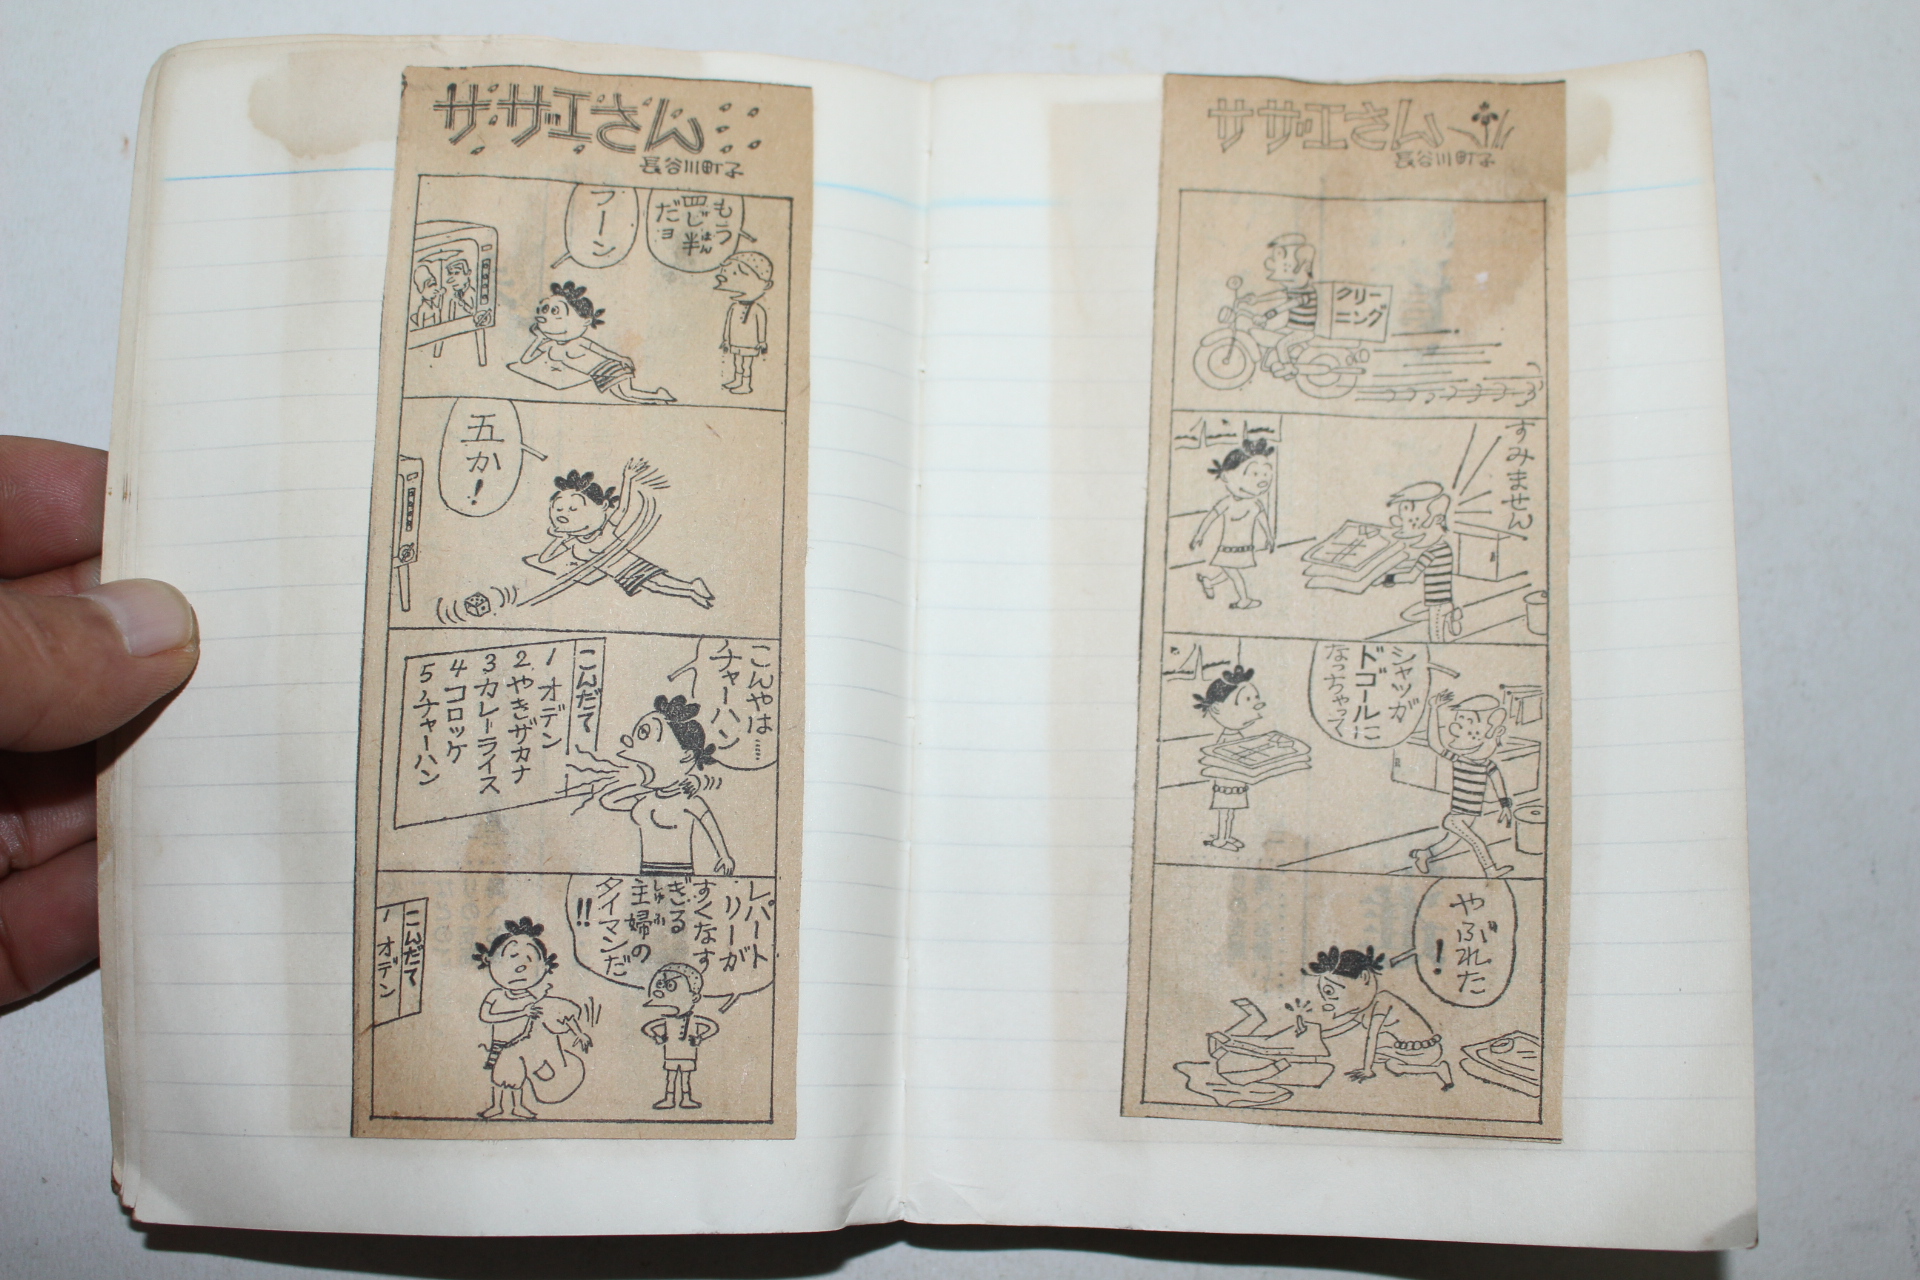 サザエさん
長谷川町子
もう
四じ半
はん
だョ
フーン
五か!
こんやは……
チャーハン
こんだて
1 オデン
2 やきザカナ
3 カレーライス
4 コロッケ
5 チャーハン
レパート
リーが
すくなす
ぎる
主婦の
しゅふ
タイマンだ
!!
こんだて
1 オデン
サザエさん
長谷川町子
クリー
ニング
すみません
シャツが
ドゴールに
なっちゃって
やぶれた
!